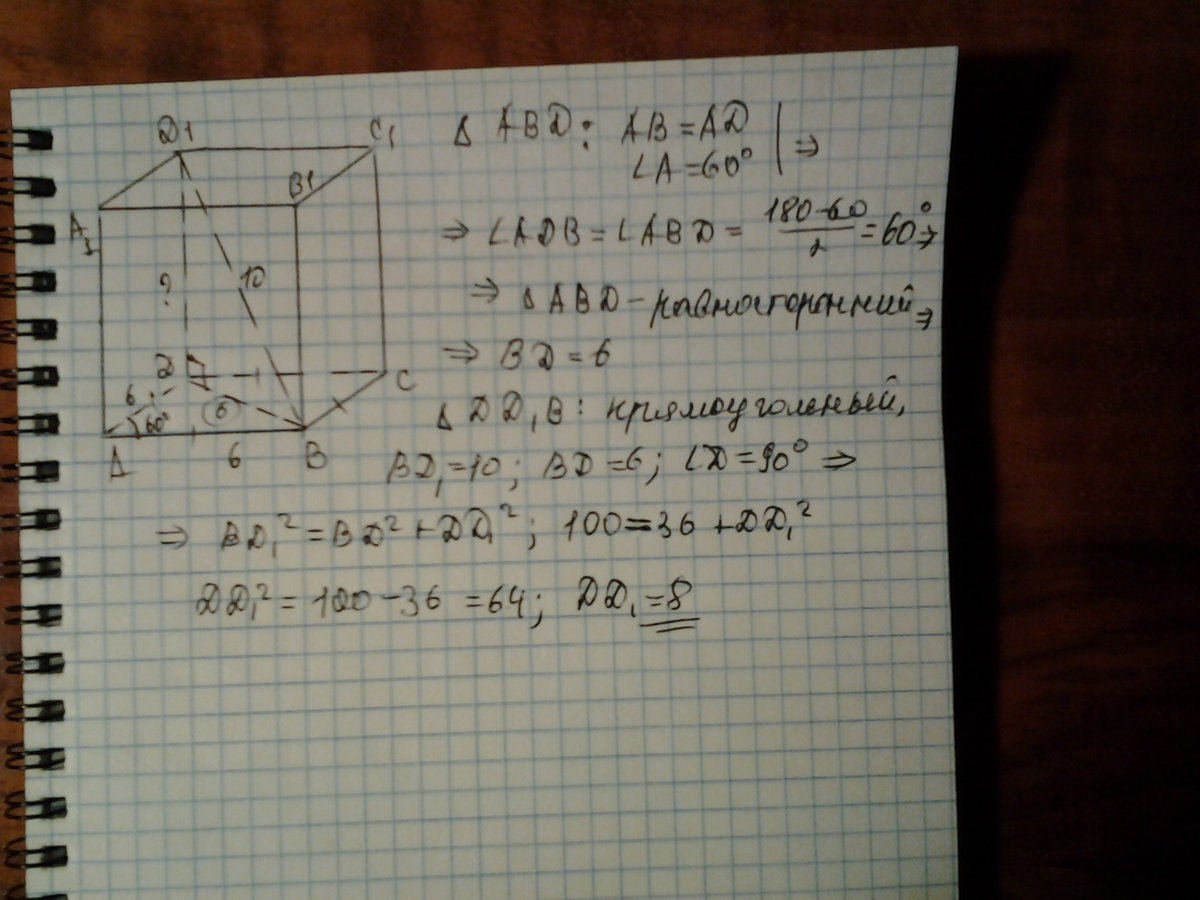 D1
C1
B1
A1
?
10
D
C
6
60°
6
A
6
B
Δ ABD: AB = AD
∠A = 60° | ⇒
⇒ ∠ADB = ∠ABD = (180-60)/2 = 60° ⇒
⇒ Δ ABD - равносторонний ⇒
⇒ BD = 6
Δ DD₁B: прямоугольный,
BD₁ = 10; BD = 6; ∠D = 90° ⇒
⇒ BD₁² = BD² + DD₁²; 100 = 36 + DD₁²
DD₁² = 100 - 36 = 64; DD₁ = 8